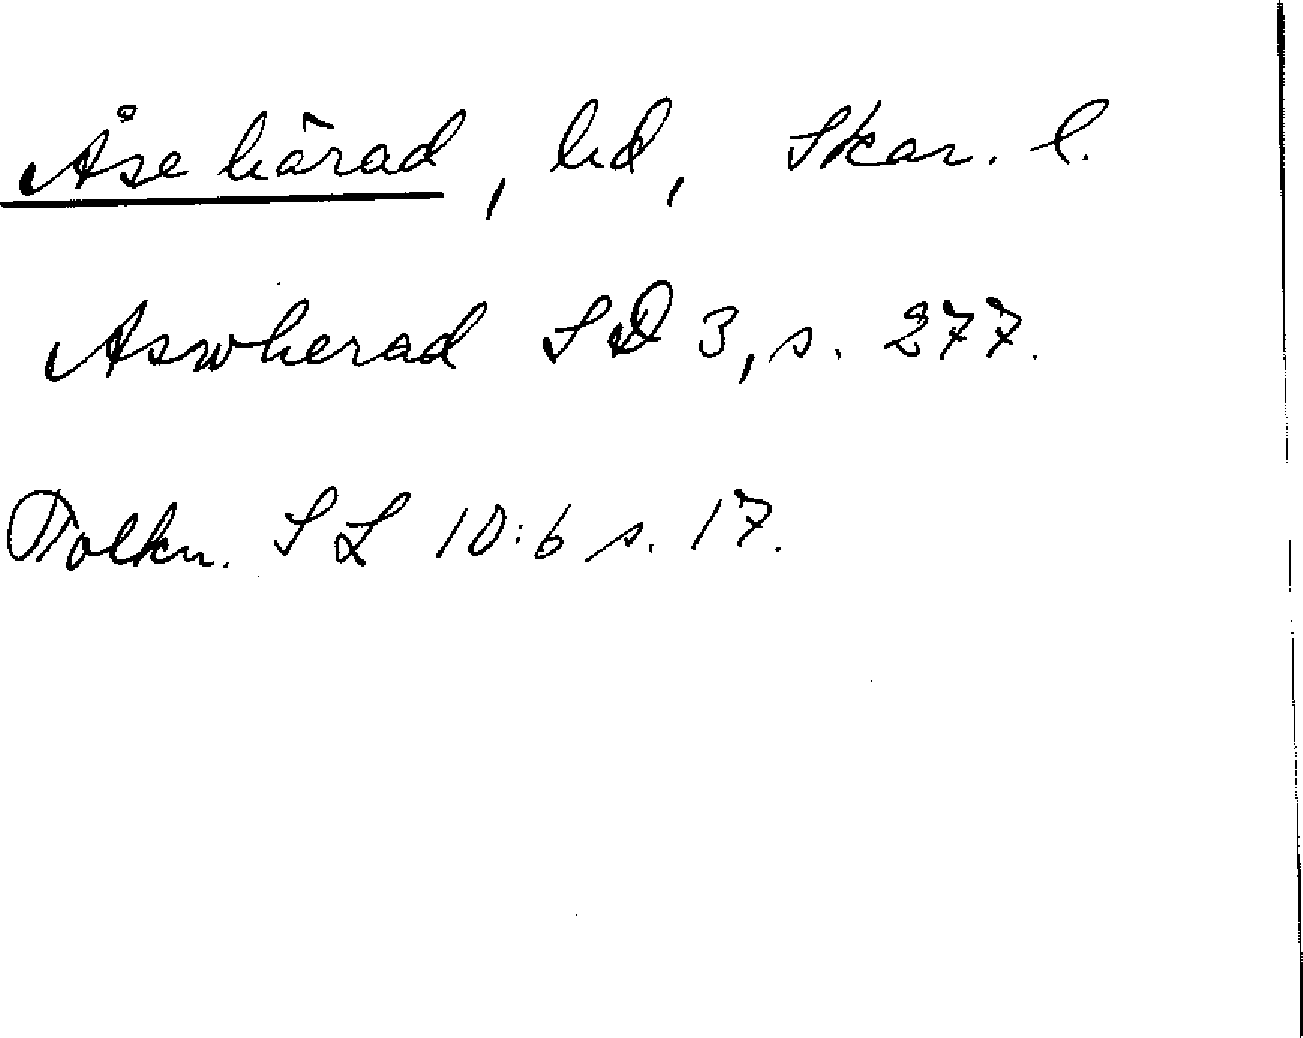 Åse härad, hd, Skar. l.
Aswherad SD 3, s. 277.
Tolkn. SL 10:6 s. 17.